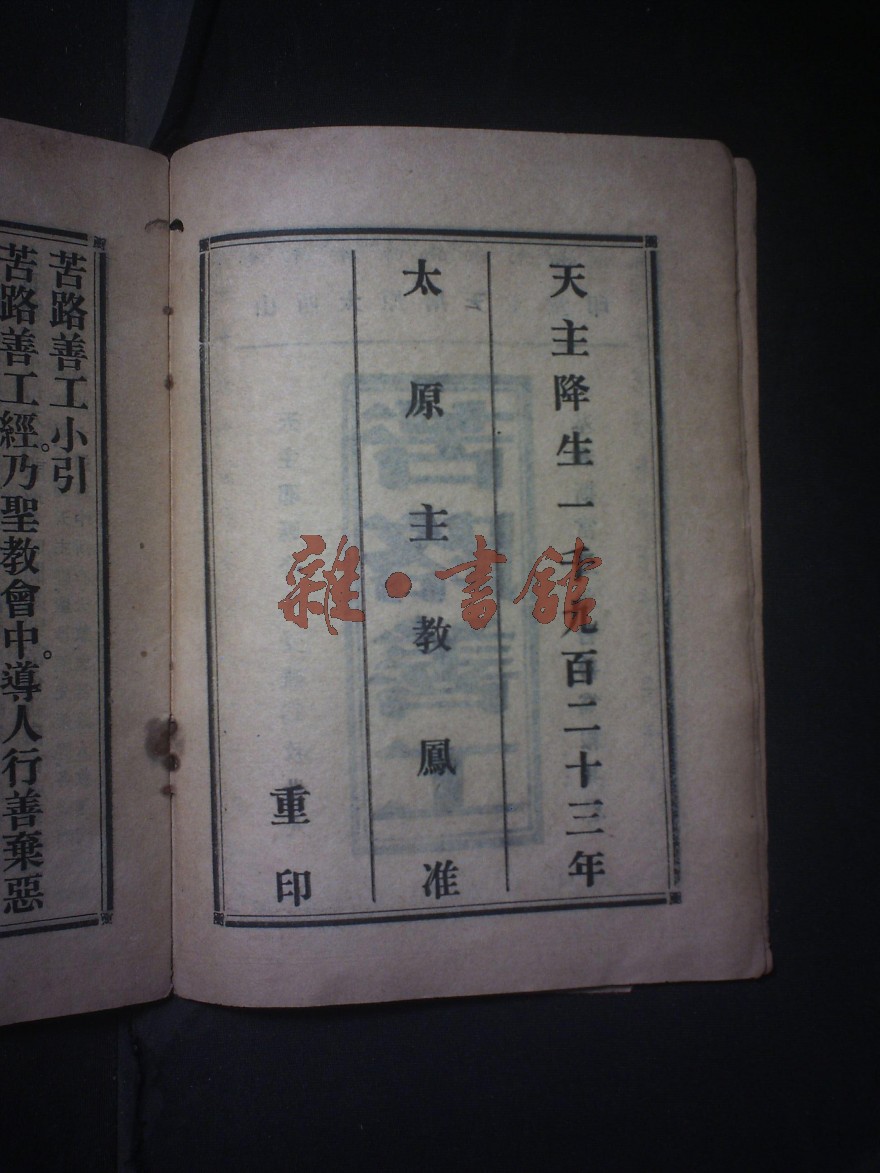 天主降生一千九百二十三年
太原主教鳳准
重印
苦路善工小引
苦路善工經。乃聖教會中。導人行善棄惡
雜·書館